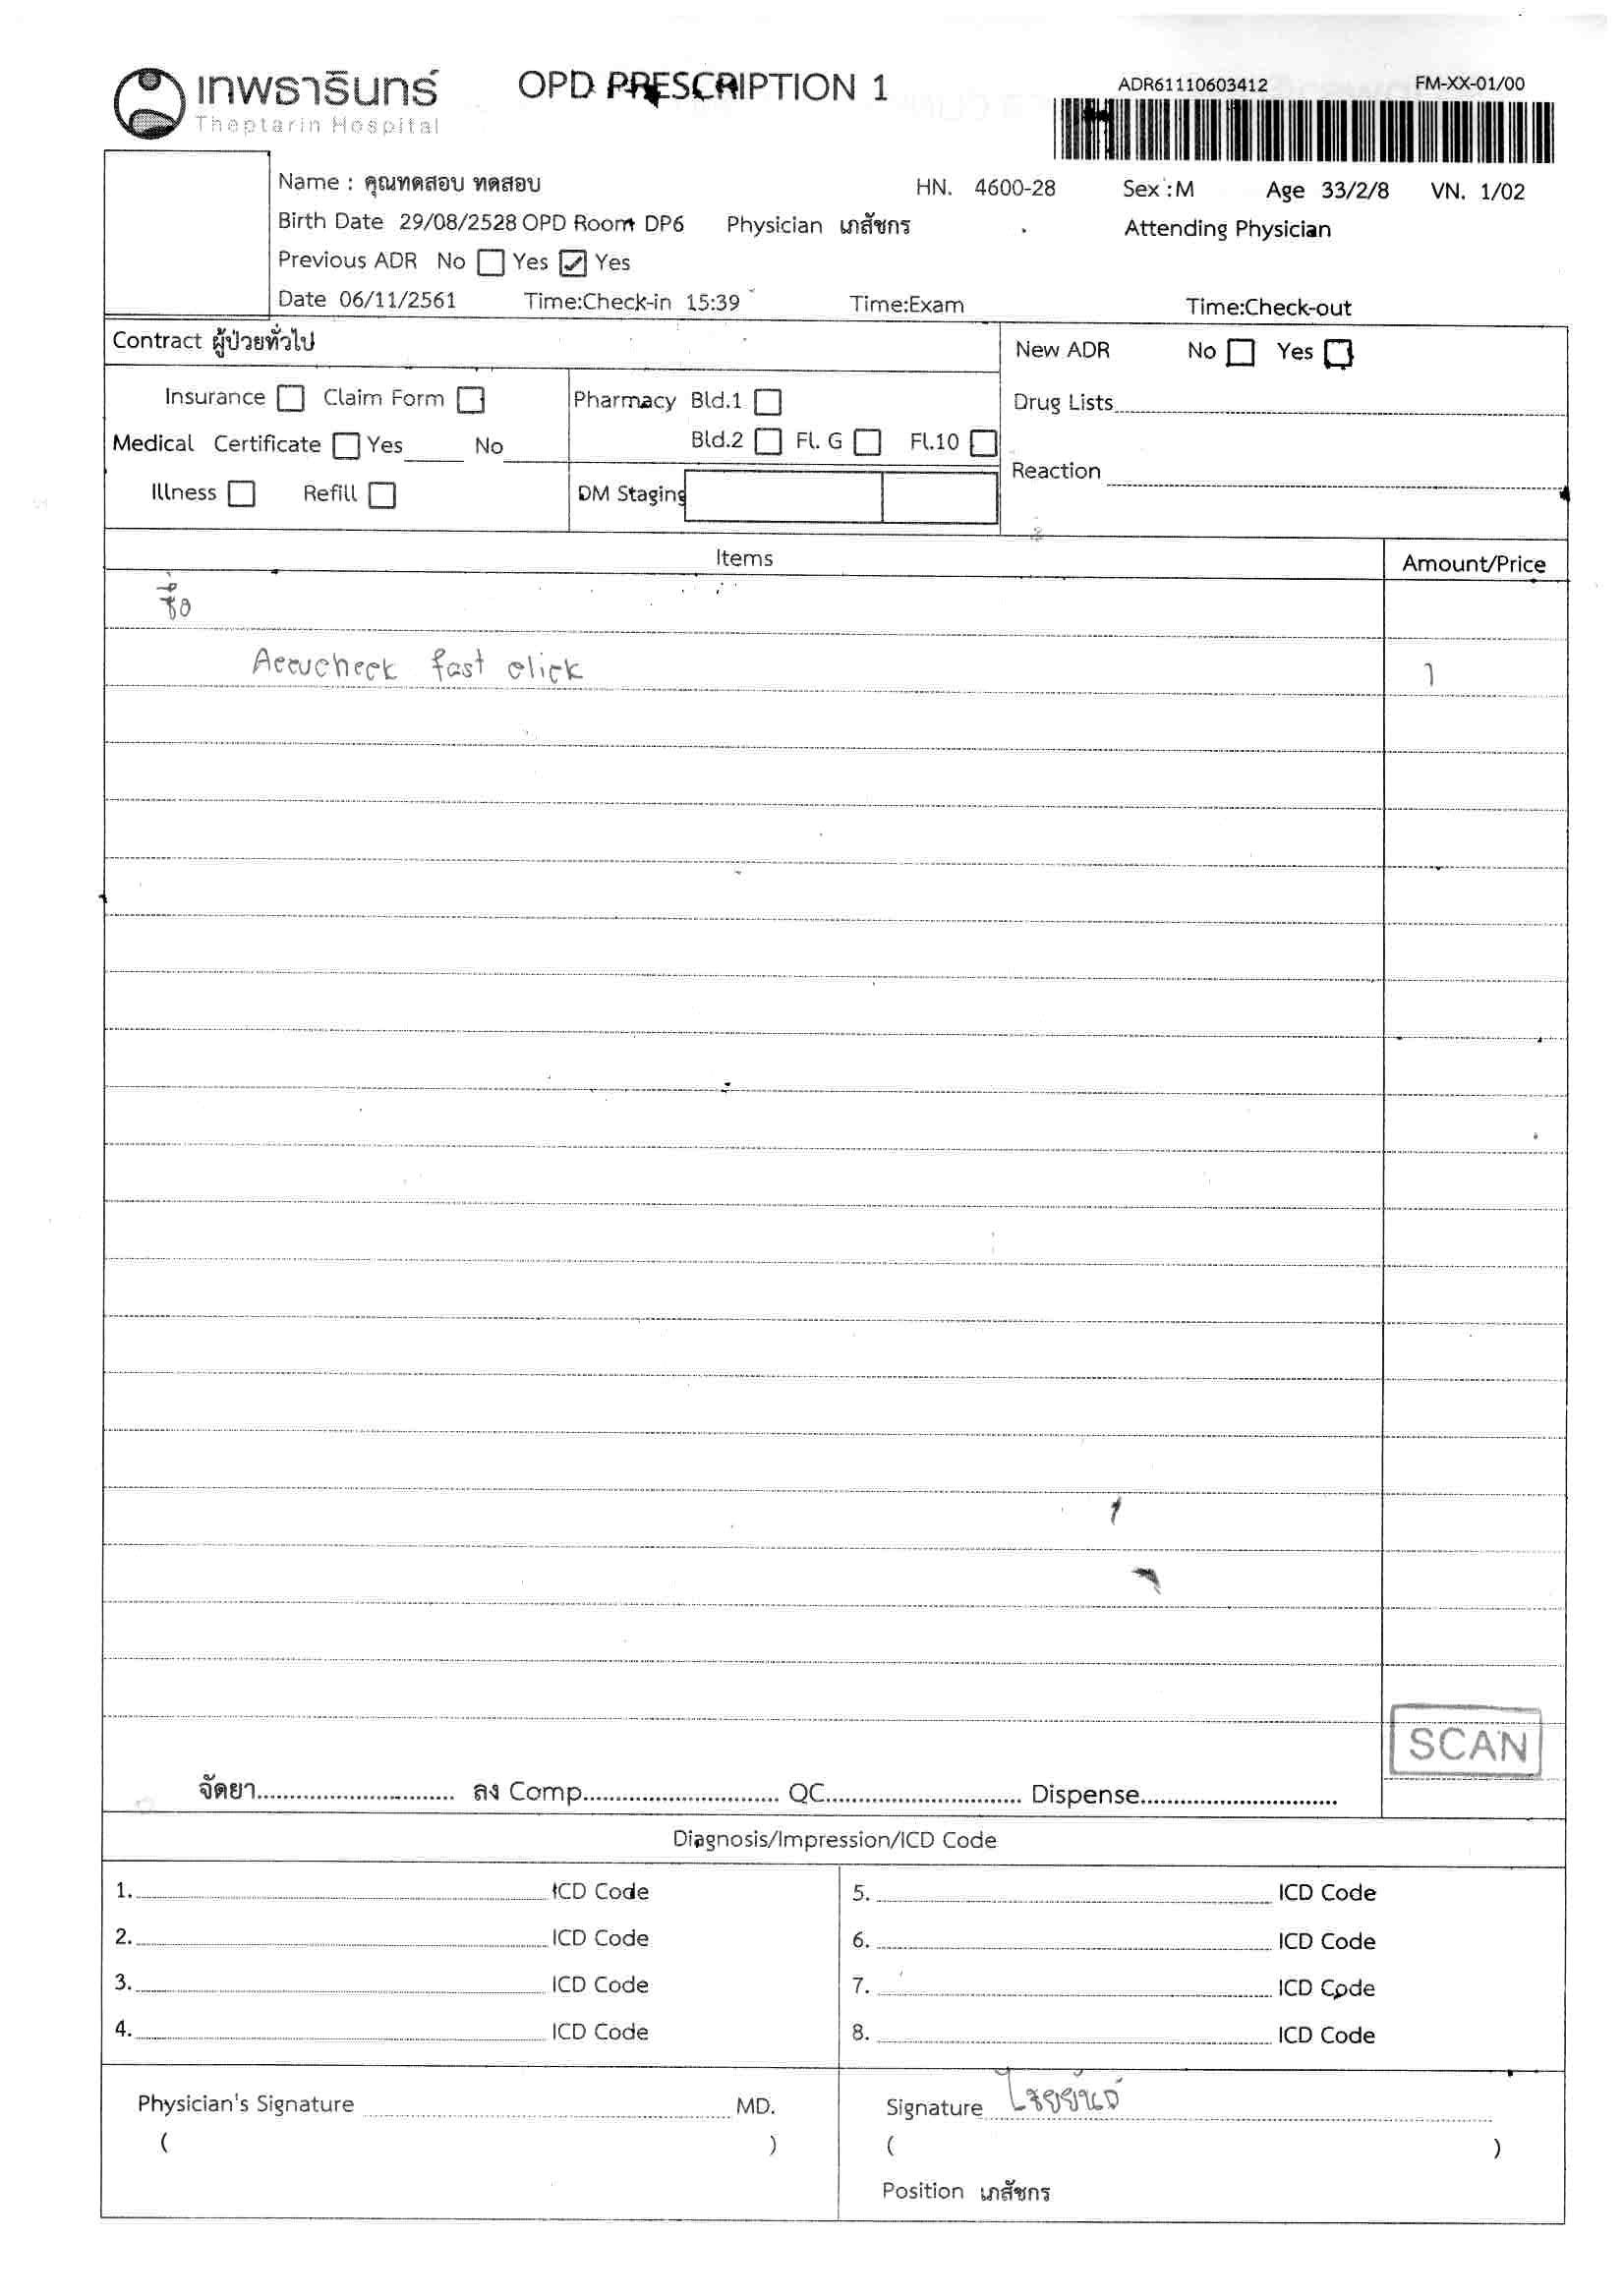 เทพธารินทร์ OPD PRESCRIPTION 1 ADR61110603412 FM-XX-01/00
Theptarin Hospital
Name : คุณทดสอบ ทดสอบ HN. 4600-28 Sex :M Age 33/2/8 VN. 1/02
Birth Date 29/08/2528 OPD Room DP6 Physician เภสัชกร Attending Physician
Previous ADR No Yes Yes
Date 06/11/2561 Time:Check-in 15:39 Time:Exam Time:Check-out
Contract ผู้ป่วยทั่วไป New ADR No Yes
Insurance Claim Form Pharmacy Bld.1 Drug Lists
Medical Certificate Yes No Bld.2 Fl. G Fl.10
Reaction
Illness Refill DM Staging
Items Amount/Price
ซื้อ
Accucheck fast click 1
SCAN
จัดยา ลง Comp. QC. Dispense
Diagnosis/Impression/ICD Code
1. ICD Code 5. ICD Code
2. ICD Code 6. ICD Code
3. ICD Code 7. ICD Code
4. ICD Code 8. ICD Code
Physician's Signature MD. Signature
( ) ( )
Position เภสัชกร